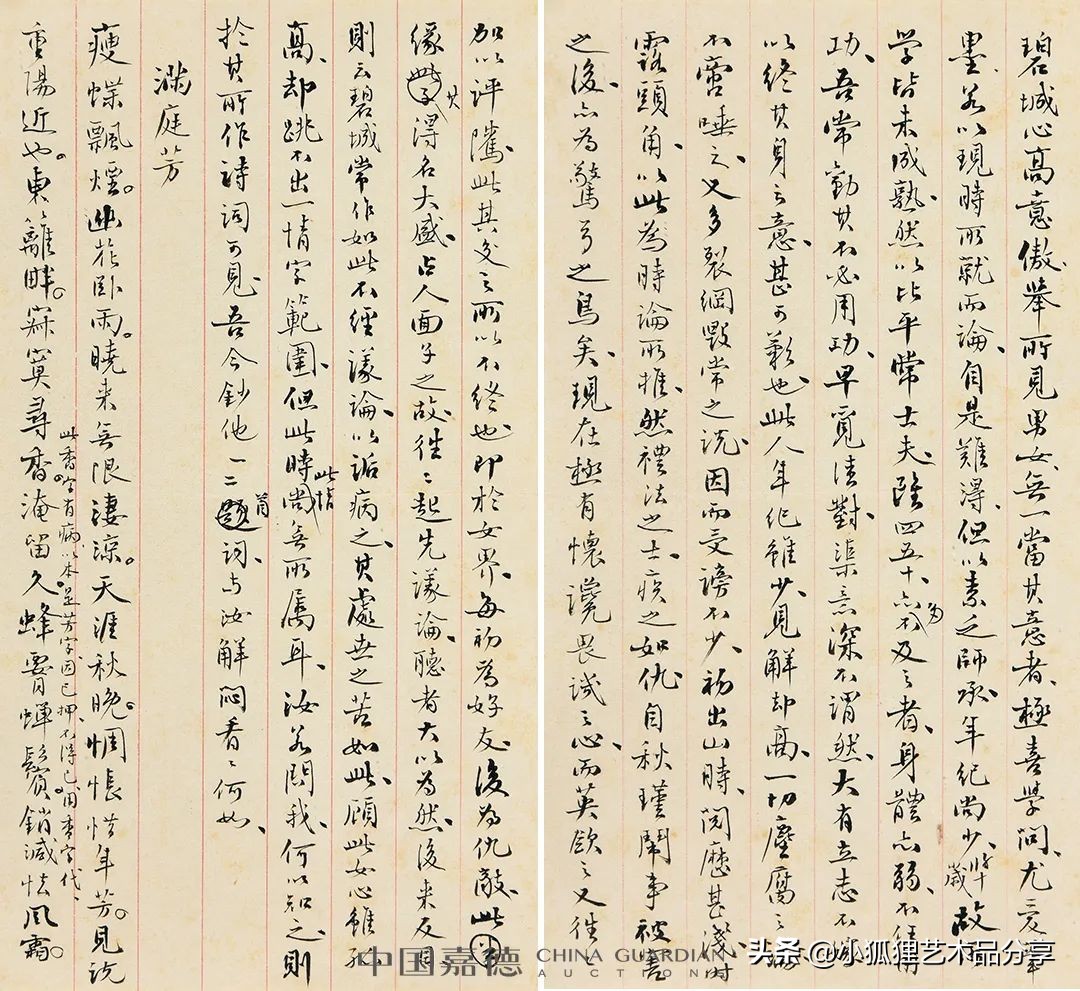 碧城心高意傲、舉所見男女、無一當其意者、極喜學問、尤愛筆
墨、若以現時所就而論、自是難得、但以素乏師承、年紀尚少、故
歲
学皆未成熟、然以比平常士夫、雖四五十、亦不及之者、身體亦弱、不
為
功、吾常勸其不必用功、早覓佳對、渠意深不謂然、大有立志不
以終其身之意、甚可歎也、此人年紀雖少、見解却高、一切塵腐之
不啻唾之、又多裂綱毀常之說、因而受謗不少、初出山時、閱歷甚淺、時
露頭角、以此為時論所推、然禮法之士、疾之如仇、自秋瑾鬧事被害
之後、亦為驚弓之鳥矣、現在極有懷讒畏譏之心、而英斂之又往
加以評騭、此其交之所以不終也、即於女界、每初為好友、後為仇敵、此
緣其得名大盛、占人面子之故、往々起先議論、聽者大以為然、後来反
則云碧城常作如此不經議論、以詬病之、其處世之苦如此、顧此女心雖
高、却跳不出一情字範圍、但此時尚無所屬耳、汝若問我、何以知之、則
此情
於其所作詩詞可見、吾今鈔他一二首詞、与汝解悶看々何如、
滿庭芳
瘦蝶飄煙。幽花卧雨。曉来無限淒涼。天涯秋晚。惆悵惜年芳。見説
重陽近也。東籬畔。寂寞尋香。淹留久。蜂腰蟬鬢。銷減怯風霜。
此香字有病、以本是芳字、因已押、不得已、用香字代、
中国嘉德 CHINA GUARDIAN AUCTIONS
头条 @小狐狸艺术品分享